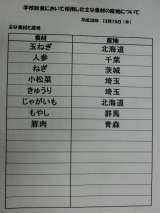 学校給食において使用した主な食材の産地について
平成28年 12月15日（木）
主な食材と産地
食材 産地
玉ねぎ 北海道
人参 千葉
ねぎ 茨城
小松菜 埼玉
きゅうり 埼玉
じゃがいも 北海道
もやし 群馬
豚肉 青森